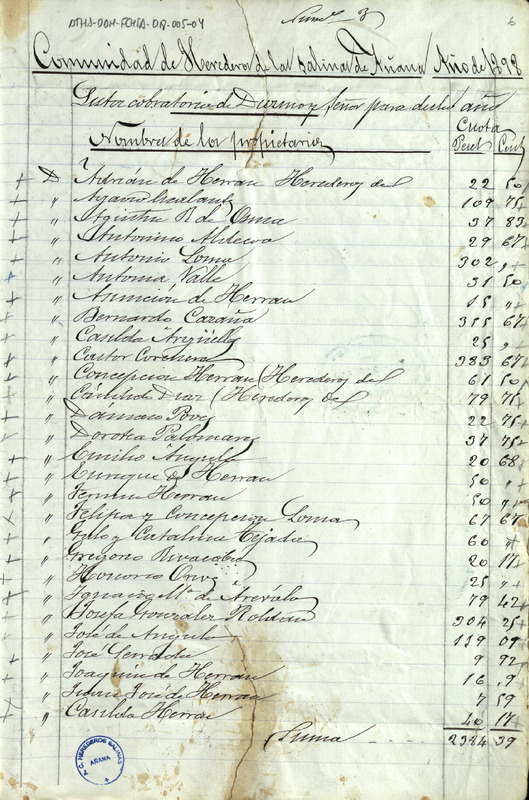 ATHA-DOH-FCHSA-OR-005-04
Num.º 3
6
Comunidad de Herederos de las Salinas de Añana Año de 1898
Lista cobratoria de Diezmo y Señor para dicho año
Cuota
Nombres de los propietarios Peset Cent
D. Adrián de Herran Herederos de 22 50
" 109 75
" Agustin R de Osma 37 83
" Antonino Aldecoa 29 67
" Antonio Loma 302 "
" Antonia Valle 31 50
" Asuncion de Herran 15 "
" Bernardo Cazaña 315 67
" Casilda Argüelles 25 "
" Castor Corchera 383 67
" Concepcion Herran (Herederos de 61 50
" Cándido Diaz (Herederos de 79 75
" Damaso Pove 22 75
" Dorotea Palomares 37 75
" Emilio Angulo 20 68
" Enrique de Herran 50 "
" Fermin Herran 50 "
" Felipa y Concepcion Loma 67 67
" y Catalina Tejada 60
" Gregorio Rivacoba 20 17
" Honorio Orive 25 "
" Ignacio Mª de Arévalo 79 42
" Josefa Gonzalez Roldan 304 25
" José de Angulo 119 09
" José 9 92
" Joaquin de Herran 16 9
" Juan José de Herran 7 59
" Casilda Herran 40 17
Suma 2384 39
C. HEREDEROS SALINAS
AÑANA